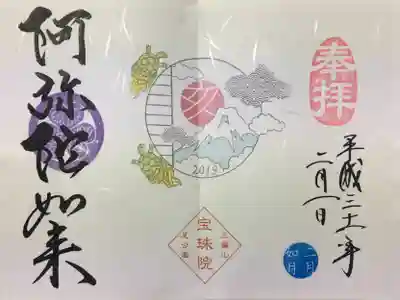 奉拝
平成三十一年
二月一日
二月
如月
亥
2019
三縁山
宝珠院
芝公園
阿弥陀如来